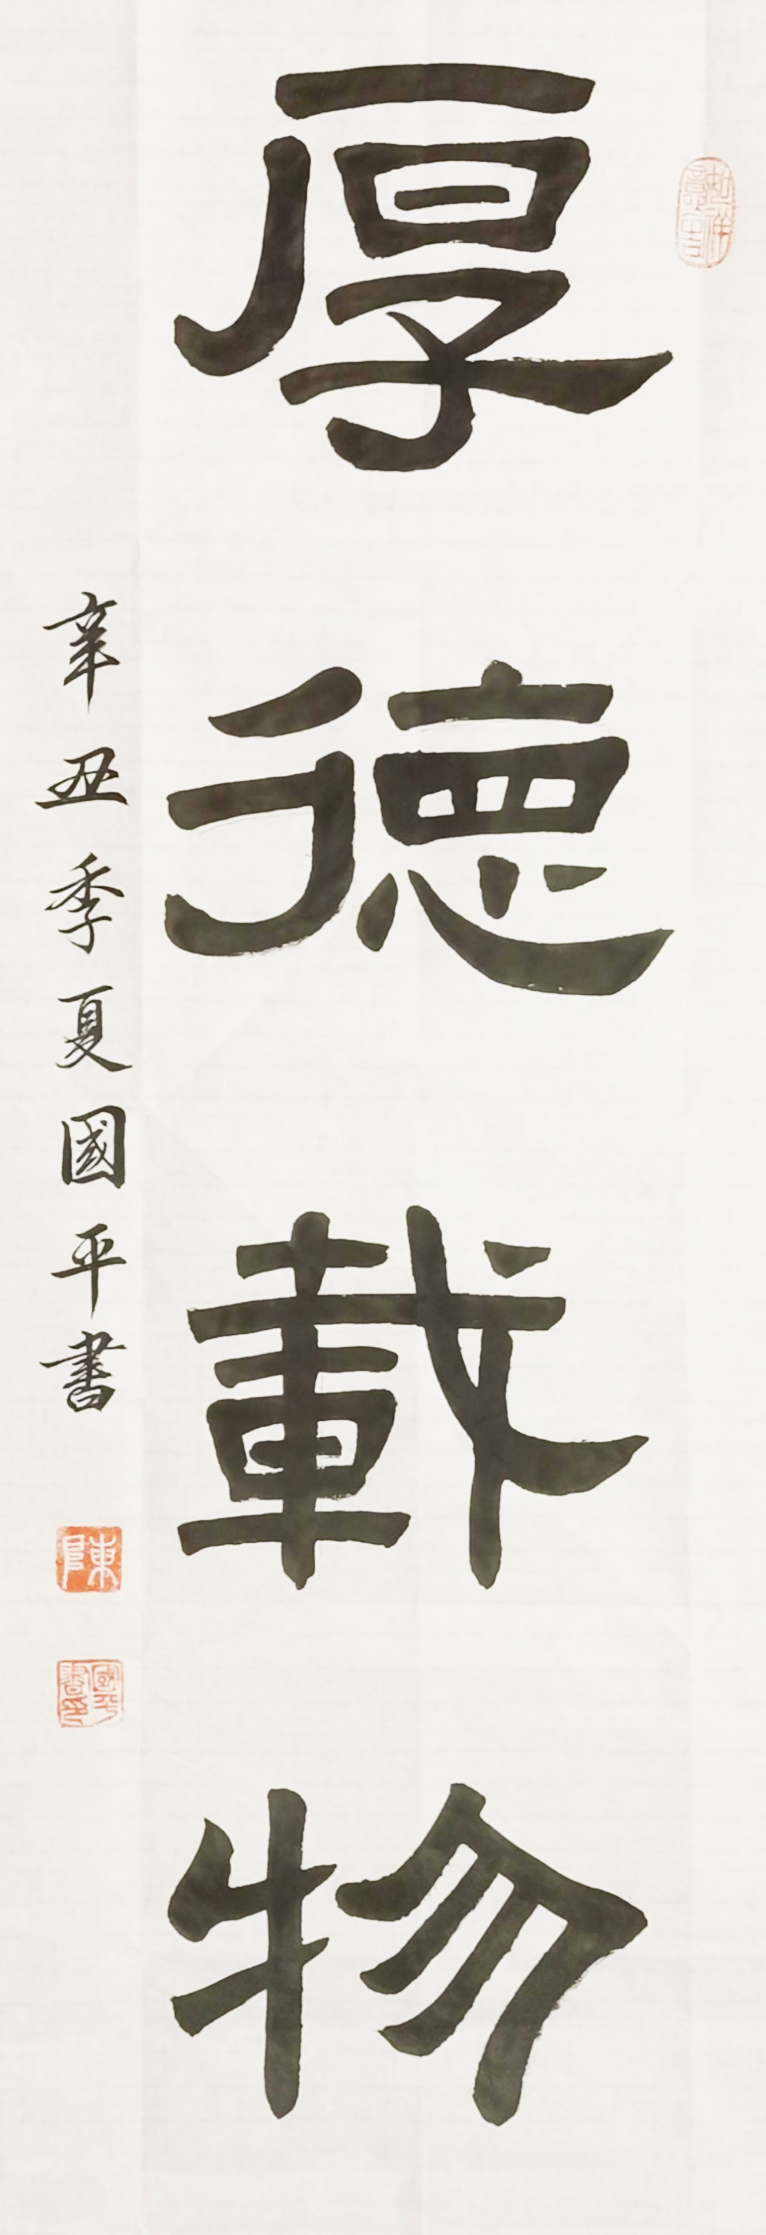 厚德載物
辛丑季夏國平書
陳
國平書印